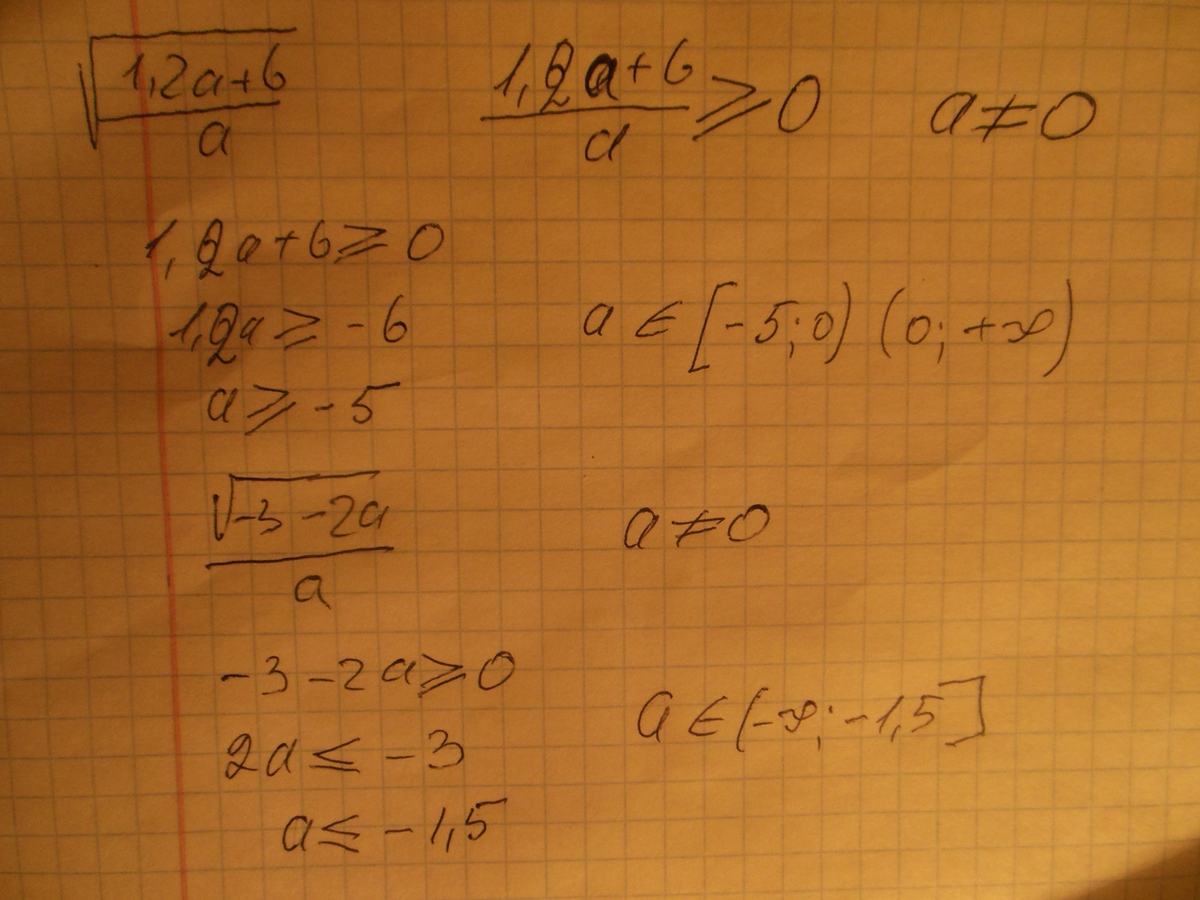 √((1,2a+6)/a) (1,2a+6)/a ⩾ 0 a≠0
1,2a+6⩾0
1,2a⩾-6 a∈[-5;0) (0;+∞)
a⩾-5
√(-3-2a)/a a≠0
-3-2a⩾0
2a≤-3 a∈(-∞;-1,5]
a≤-1,5